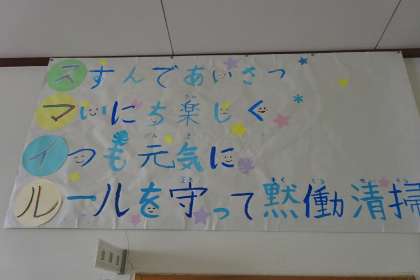 スすんであいさつ
マいにち楽しく
イつも元気に
ルールを守って黙働清掃